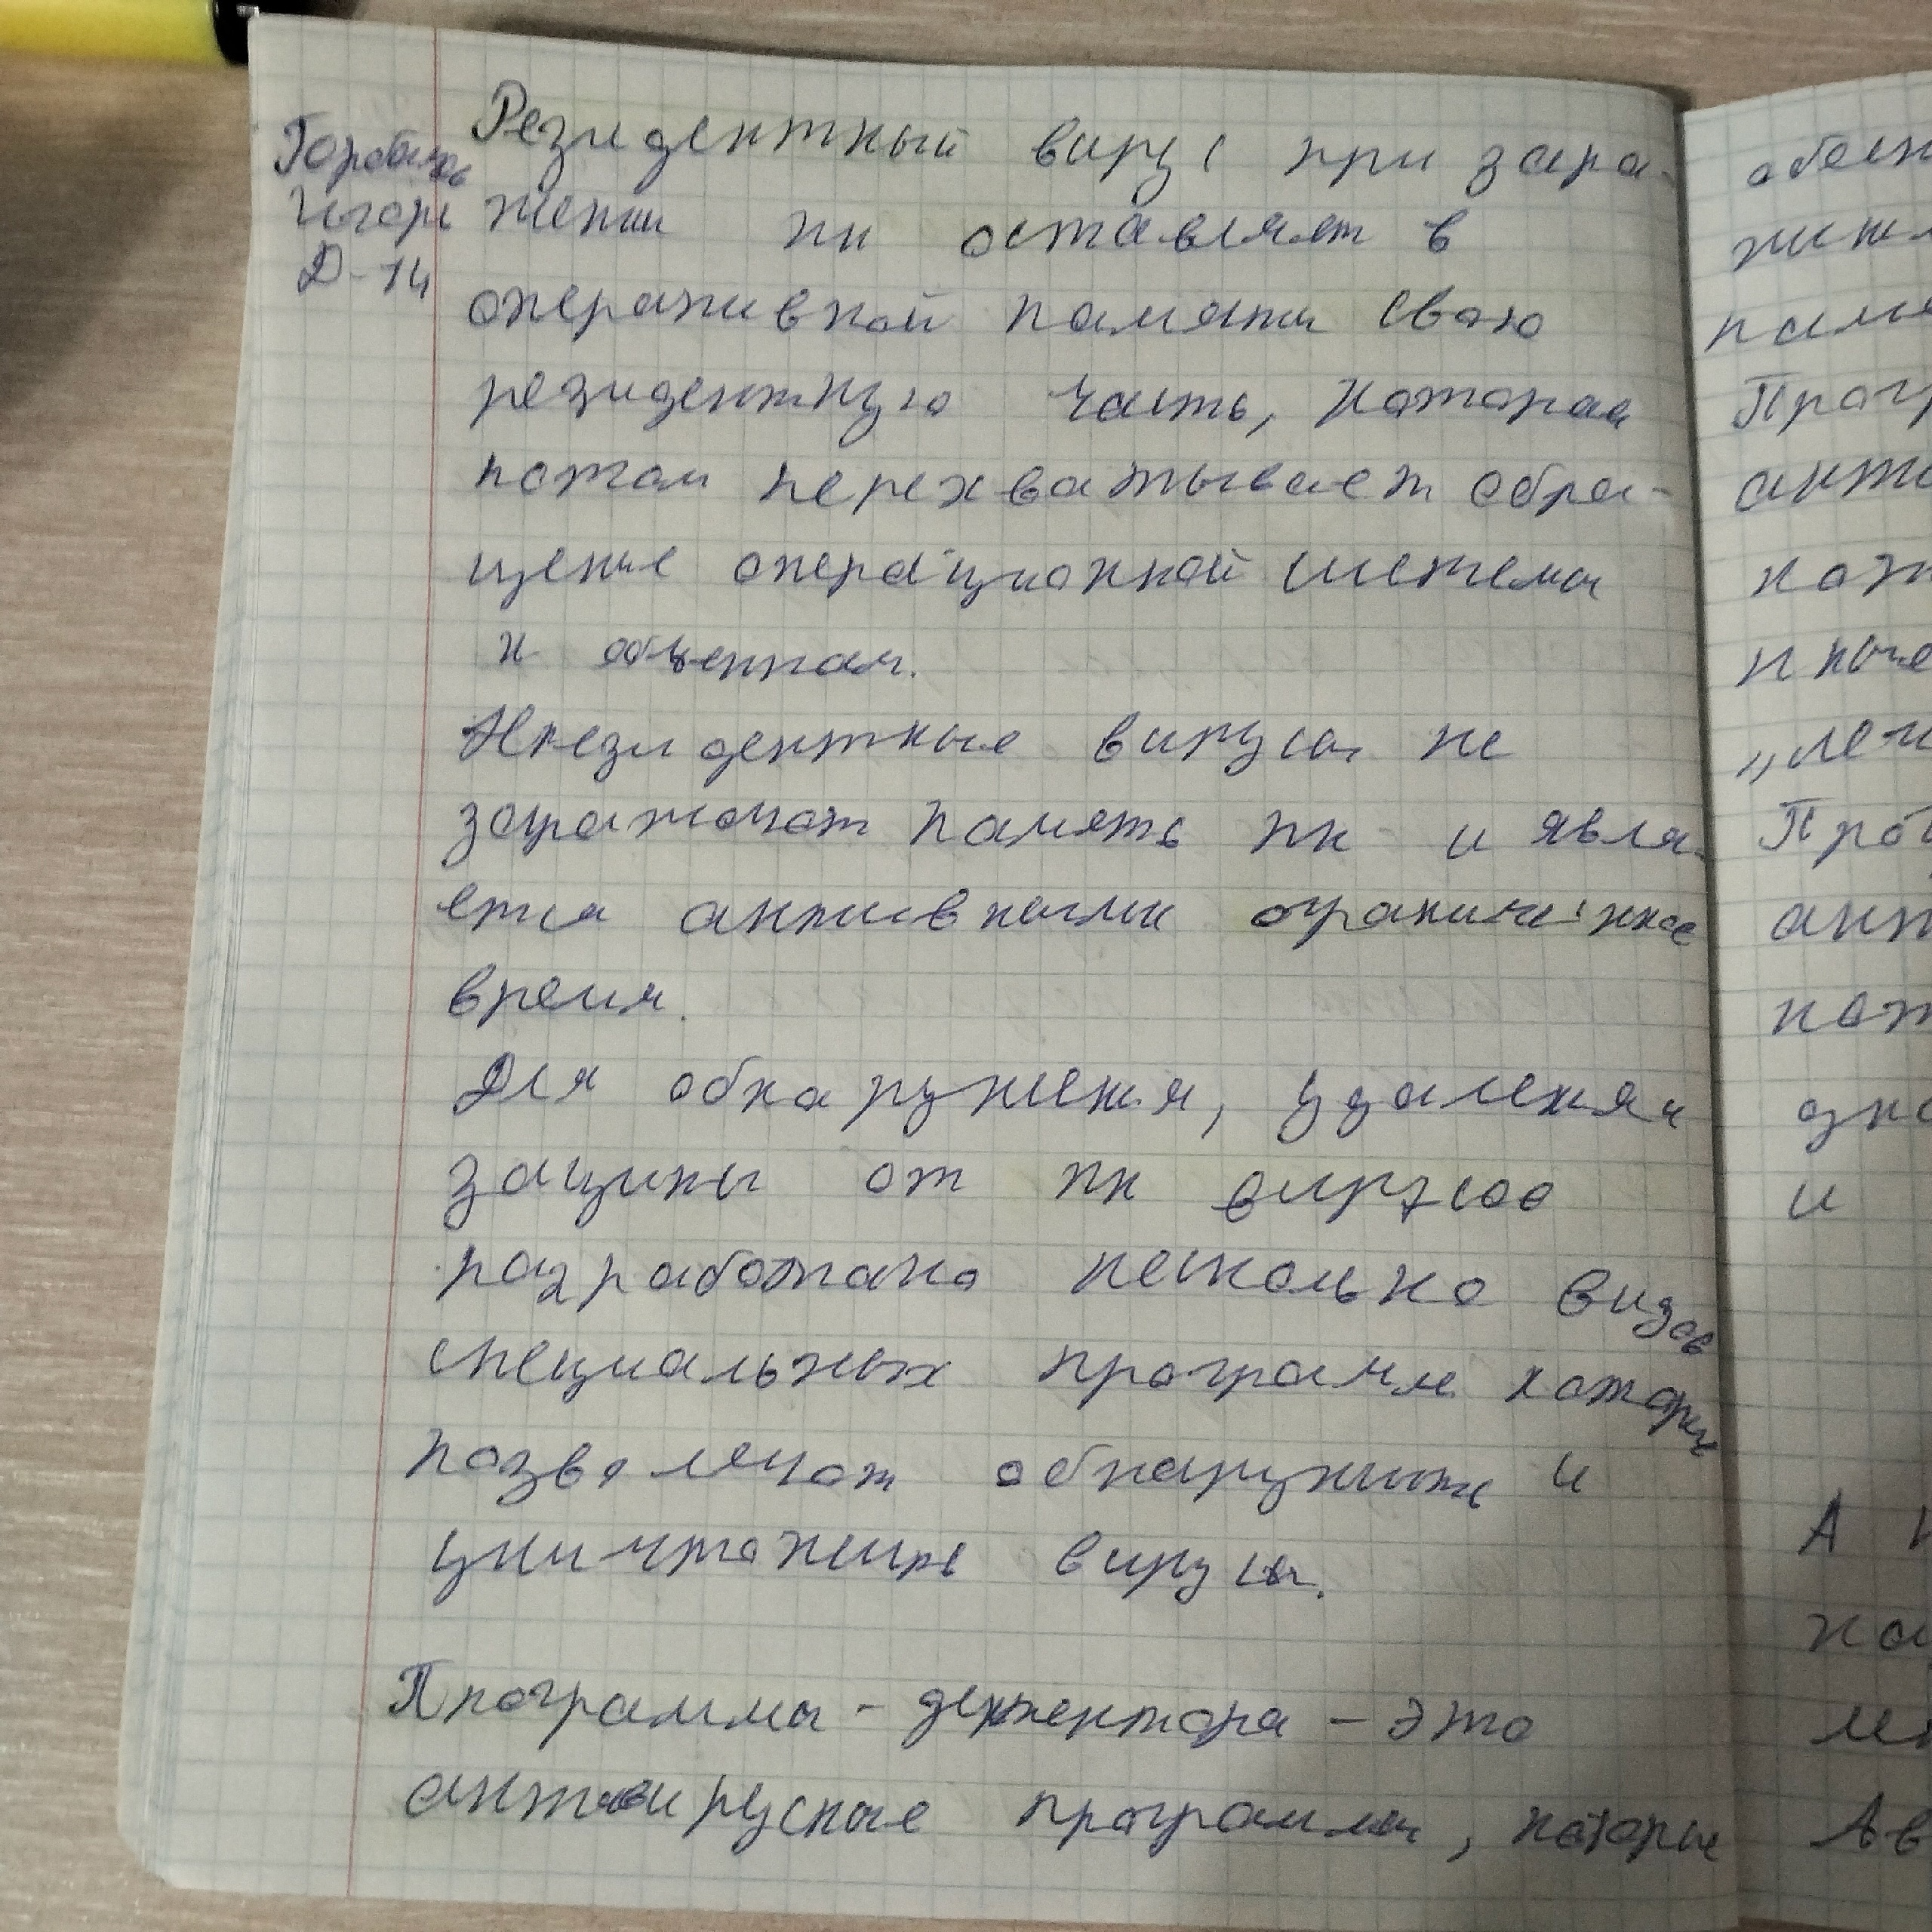 Игорь
Д-14
Резидентный вирус при зара-
жении пк оставляет в
оперативной памяти свою
резидентную часть, которая
потом перехватывает обра-
щение операционной системы
к объектам.
Нрезидентные вирусы не
заражают память пк и явля-
ется активными ограниченное
время.
Для обнаружения, удаления и
защиты от пк вирусов
разработано несколько видов
специальных программ которы
позволяют обнаружить и
уничтожить вирусы.
Программы - детектора - это
антивирусные программы, которые
обесп
Прогр
А
Ав